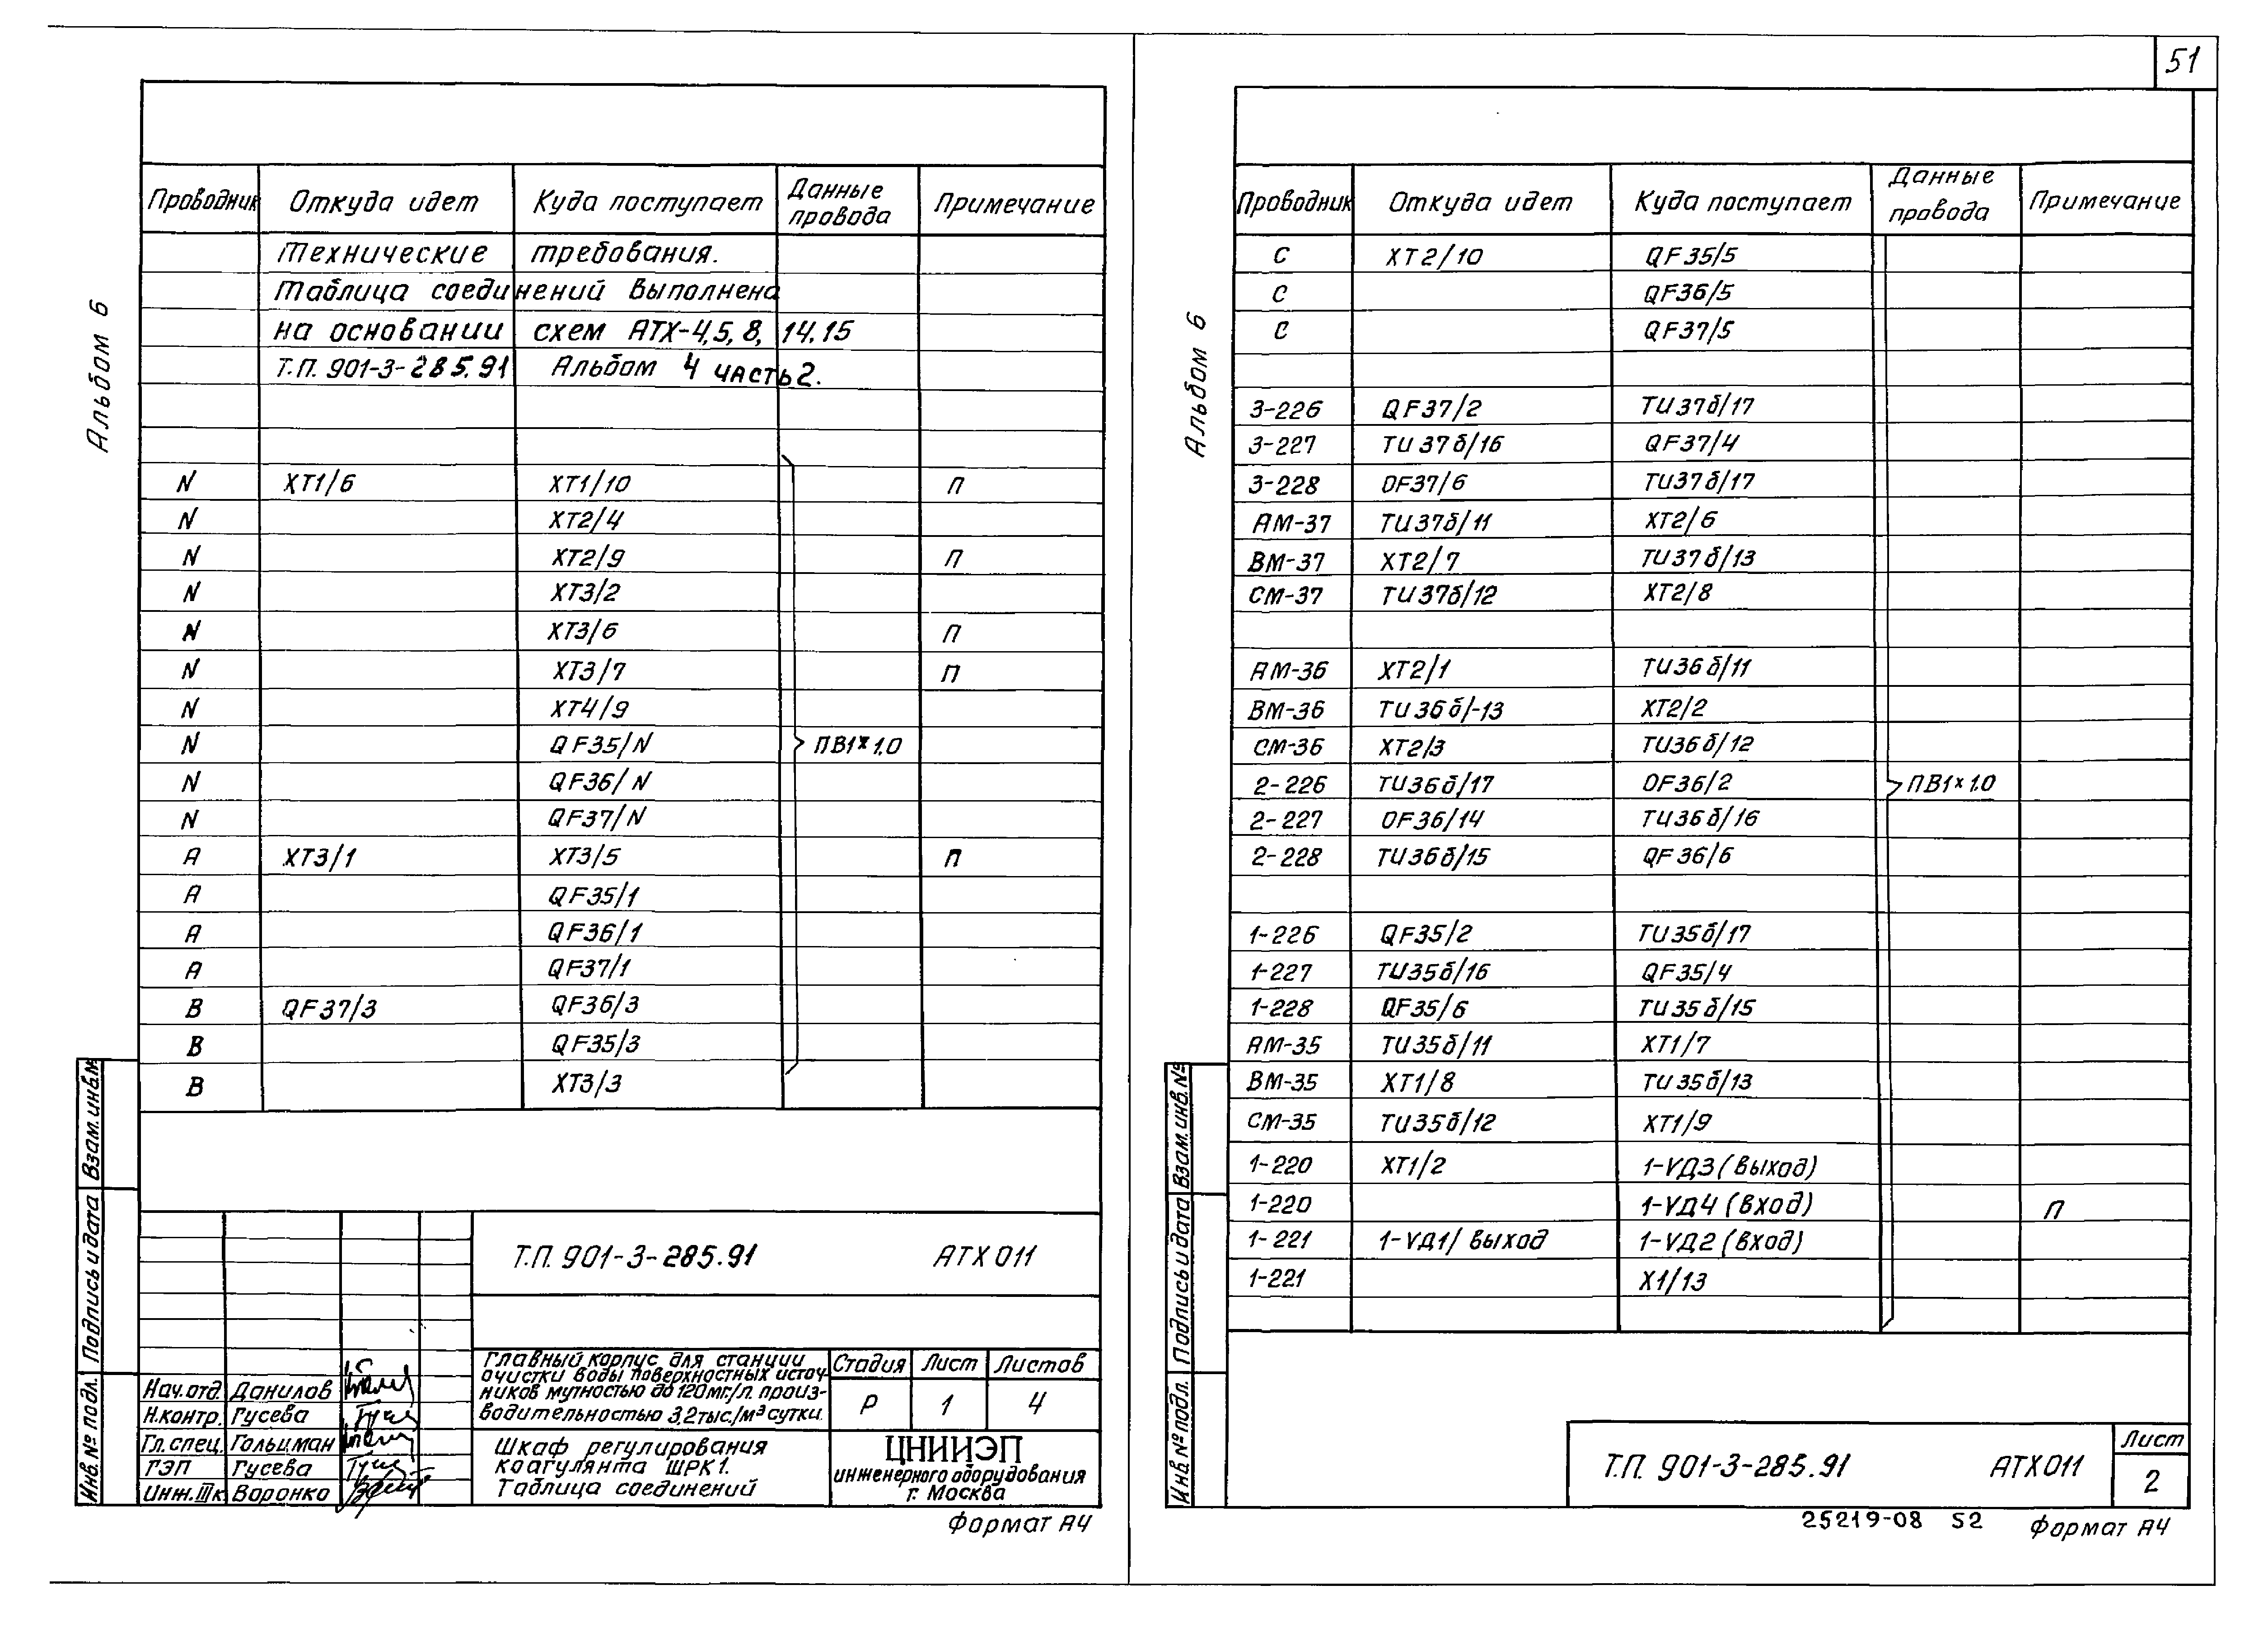 51
Альбом 6
Проводник Откуда идет Куда поступает Данные провода Примечание
Технические требования.
Таблица соединений выполнена
на основании схем АТХ-4,5,8,14.15
Т.П. 901-3-285.91 Альбом 4 часть 2.
N ХТ1/6 ХТ1/10 П
N ХТ2/4
N ХТ2/9 П
N ХТ3/2
N ХТ3/6 П
N ХТ3/7 П
N ХТ4/9
N QF35/N ПВ1×1.0
N QF36/N
N QF37/N
А ХТ3/1 ХТ3/5 П
А QF35/1
А QF36/1
А QF37/1
В QF37/3 QF36/3
В QF35/3
В ХТ3/3
Взам.инв.№
Подпись и дата
Инв.№ подл.
Т.П. 901-3-285.91 АТХ 011
Главный корпус для станции
очистки воды поверхностных источ-
ников мутностью до 120мг/л. произ-
водительностью 3,2тыс./м³сутки.
Стадия Лист Листов
Р 1 4
Нач.отд. Данилов
Н.контр. Гусева
Гл.спец. Гольцман
ГЭП Гусева
Инж.IIIк. Воронко
Шкаф регулирования
коагулянта ШРК1.
Таблица соединений
ЦНИИЭП
инженерного оборудования
г. Москва
Формат А4
Альбом 6
Проводник Откуда идет Куда поступает Данные провода Примечание
С ХТ2/10 QF35/5
С QF36/5
С QF37/5
3-226 QF37/2 TU37б/17
3-227 TU37б/16 QF37/4
3-228 OF37/6 TU37б/17
АМ-37 TU37б/11 ХТ2/6
ВМ-37 ХТ2/7 TU37б/13
СМ-37 TU37б/12 ХТ2/8
АМ-36 ХТ2/1 TU36б/11
ВМ-36 TU36б/-13 ХТ2/2
СМ-36 ХТ2/3 TU36б/12
2-226 TU36б/17 OF36/2 ПВ1×1.0
2-227 OF36/14 TU36б/16
2-228 TU36б/15 QF36/6
1-226 QF35/2 TU35б/17
1-227 TU35б/16 QF35/4
1-228 QF35/6 TU35б/15
АМ-35 TU35б/11 ХТ1/7
ВМ-35 ХТ1/8 TU35б/13
СМ-35 TU35б/12 ХТ1/9
1-220 ХТ1/2 1-УД3 (выход)
1-220 1-УД4 (вход) П
1-221 1-УД1/ выход 1-УД2 (вход)
1-221 Х1/13
Взам.инв.№
Подпись и дата
Инв.№ подл.
Т.П. 901-3-285.91 АТХ011
Лист
2
25219-08 52
Формат А4